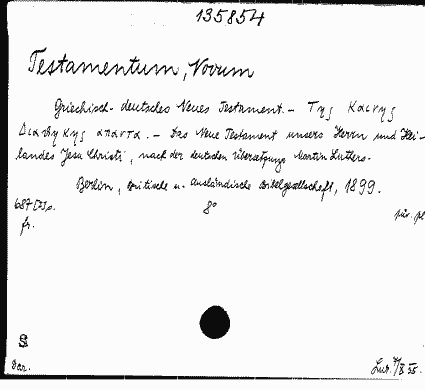 135854
Testamentum, Novum
Griechisch-deutsches Neues Testament. – Της Καινης
Διαθηκης απαντα. – Das Neue Testament unsers Herrn und Hei-
landes Jesu Christi, nach der deutschen Übersetzung Martin Luthers.
Berlin, Britische u. Ausländische Bibelgesellschaft, 1899.
687 S. 8°
fr.
S
Dar.